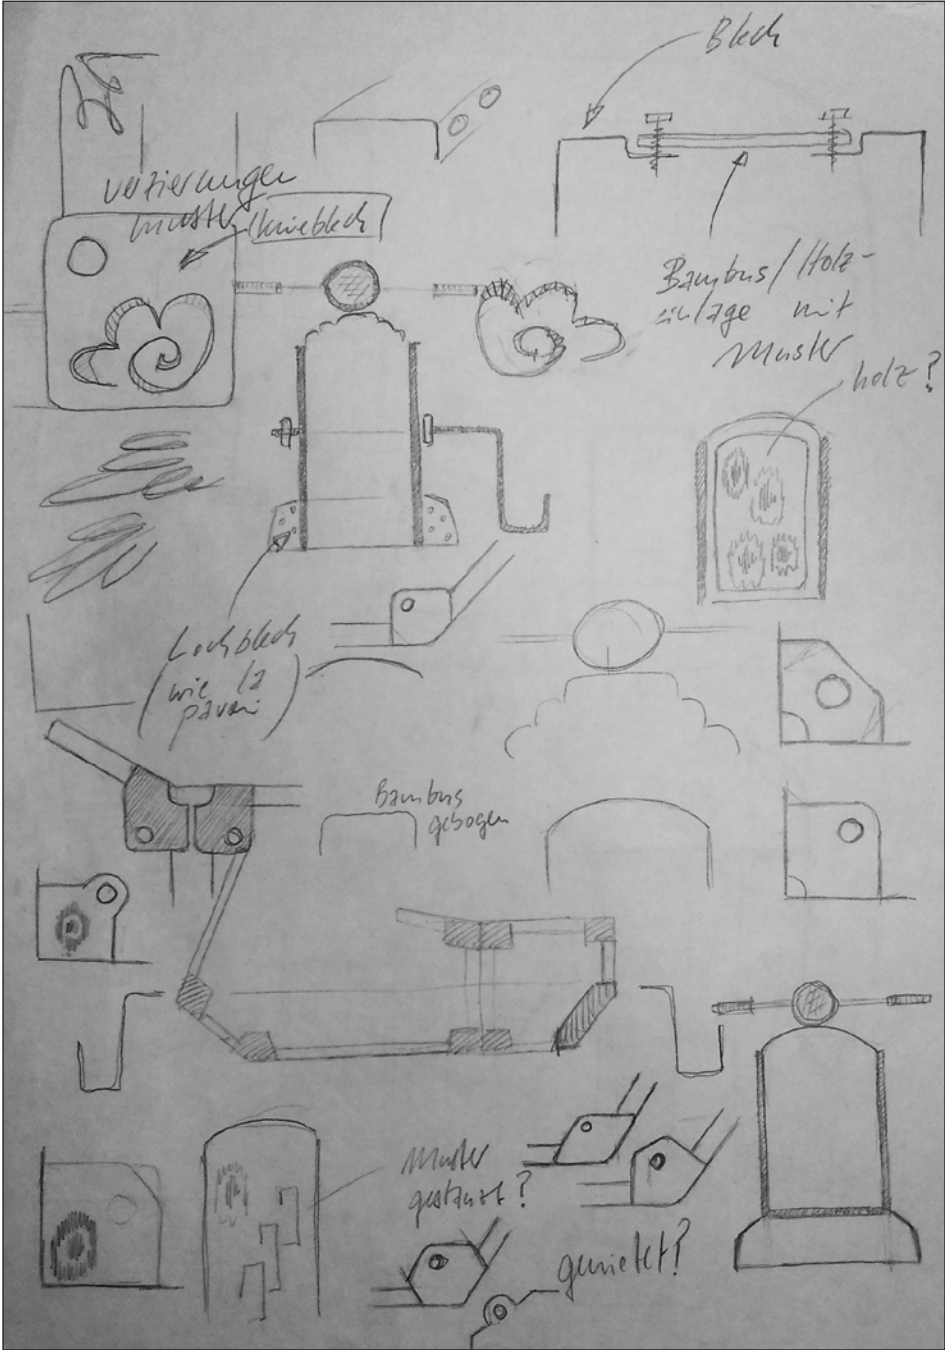 Blech
verzierungen
muster
Bambus/Holz-
einlage mit
Muster
holz?
Lochblech
(wie la
pavoni)
Bambus
gebogen
Muster
gestanzt?
genietet?